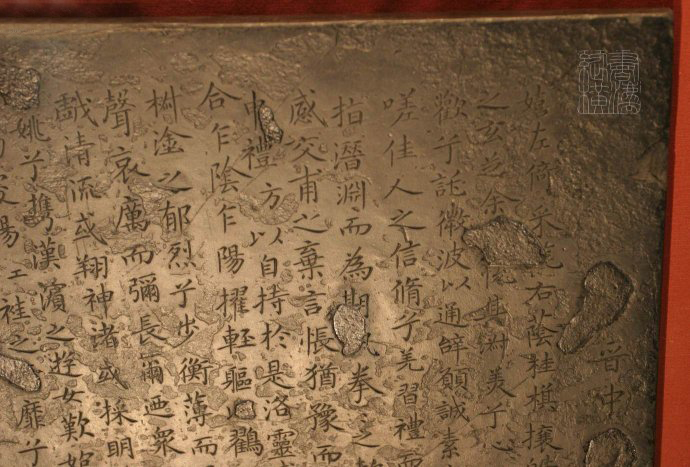 書灋縱橫
晋中
嬉左倚采旄右蔭桂旗攘
之玄芝余悅其淑美兮心
歡兮託微波以通辭願誠素
嗟佳人之信脩兮羌習禮而
指潛淵而為期執拳之
感交甫之棄言悵猶豫而
申禮防以自持於是洛靈
合乍陰乍陽擢輕軀以鶴
椒塗之郁烈兮步衡薄而
聲哀厲而彌長爾迺衆
戲清流或翔神渚或採明
姚兮攜漢濱之游女歎匏
陽上袿之靡兮